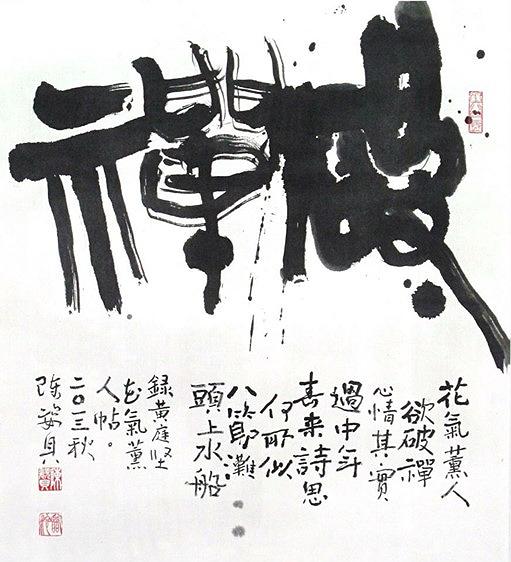 破禪
花氣薰人
欲破禪
心情其實
過中年
春来詩思
何所似
八節灘
頭上水船
錄黃庭堅
花氣薰
人帖。
二〇一三秋